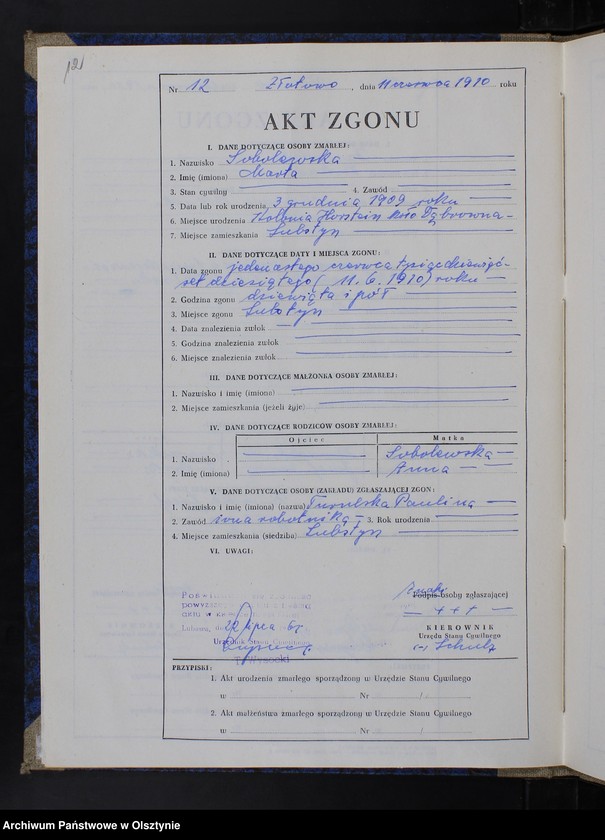 12
Nr 12 Złotowo, dnia 11 czerwca 1910 roku
AKT ZGONU
I. DANE DOTYCZĄCE OSOBY ZMARŁEJ:
1. Nazwisko Sobolewska
2. Imię (imiona) Marta
3. Stan cywilny 4. Zawód
5. Data lub rok urodzenia 3 grudnia 1909 roku
6. Miejsce urodzenia Kolonia koło Dąbrówna
7. Miejsce zamieszkania Lubstyn
II. DANE DOTYCZĄCE DATY I MIEJSCA ZGONU:
1. Data zgonu jedenastego czerwca tysiąc dziewięć-
set dziesiątego (11.6.1910) roku
2. Godzina zgonu dziewiąta i pół
3. Miejsce zgonu Lubstyn
4. Data znalezienia zwłok
5. Godzina znalezienia zwłok
6. Miejsce znalezienia zwłok
III. DANE DOTYCZĄCE MAŁŻONKA OSOBY ZMARŁEJ:
1. Nazwisko i imię (imiona)
2. Miejsce zamieszkania (jeżeli żyje)
IV. DANE DOTYCZĄCE RODZICÓW OSOBY ZMARŁEJ:
Ojciec Matka
1. Nazwisko Sobolewska
2. Imię (imiona) Anna
V. DANE DOTYCZĄCE OSOBY (ZAKŁADU) ZGŁASZAJĄCEJ ZGON:
1. Nazwisko i imię (imiona) (nazwa) Paulina
2. Zawód żona robotnika 3. Rok urodzenia
4. Miejsce zamieszkania (siedziba) Lubstyn
VI. UWAGI:
Znaki
Podpis osoby zgłaszającej
+++
22 lipca
KIEROWNIK
Urzędu Stanu Cywilnego
Urzędnik Stanu Cywilnego
(-) Schulz
T. Wysocki
PRZYPISKI:
1. Akt urodzenia zmarłego sporządzony w Urzędzie Stanu Cywilnego
w Nr /
2. Akt małżeństwa zmarłego sporządzony w Urzędzie Stanu Cywilnego
w Nr /
Archiwum Państwowe w Olsztynie